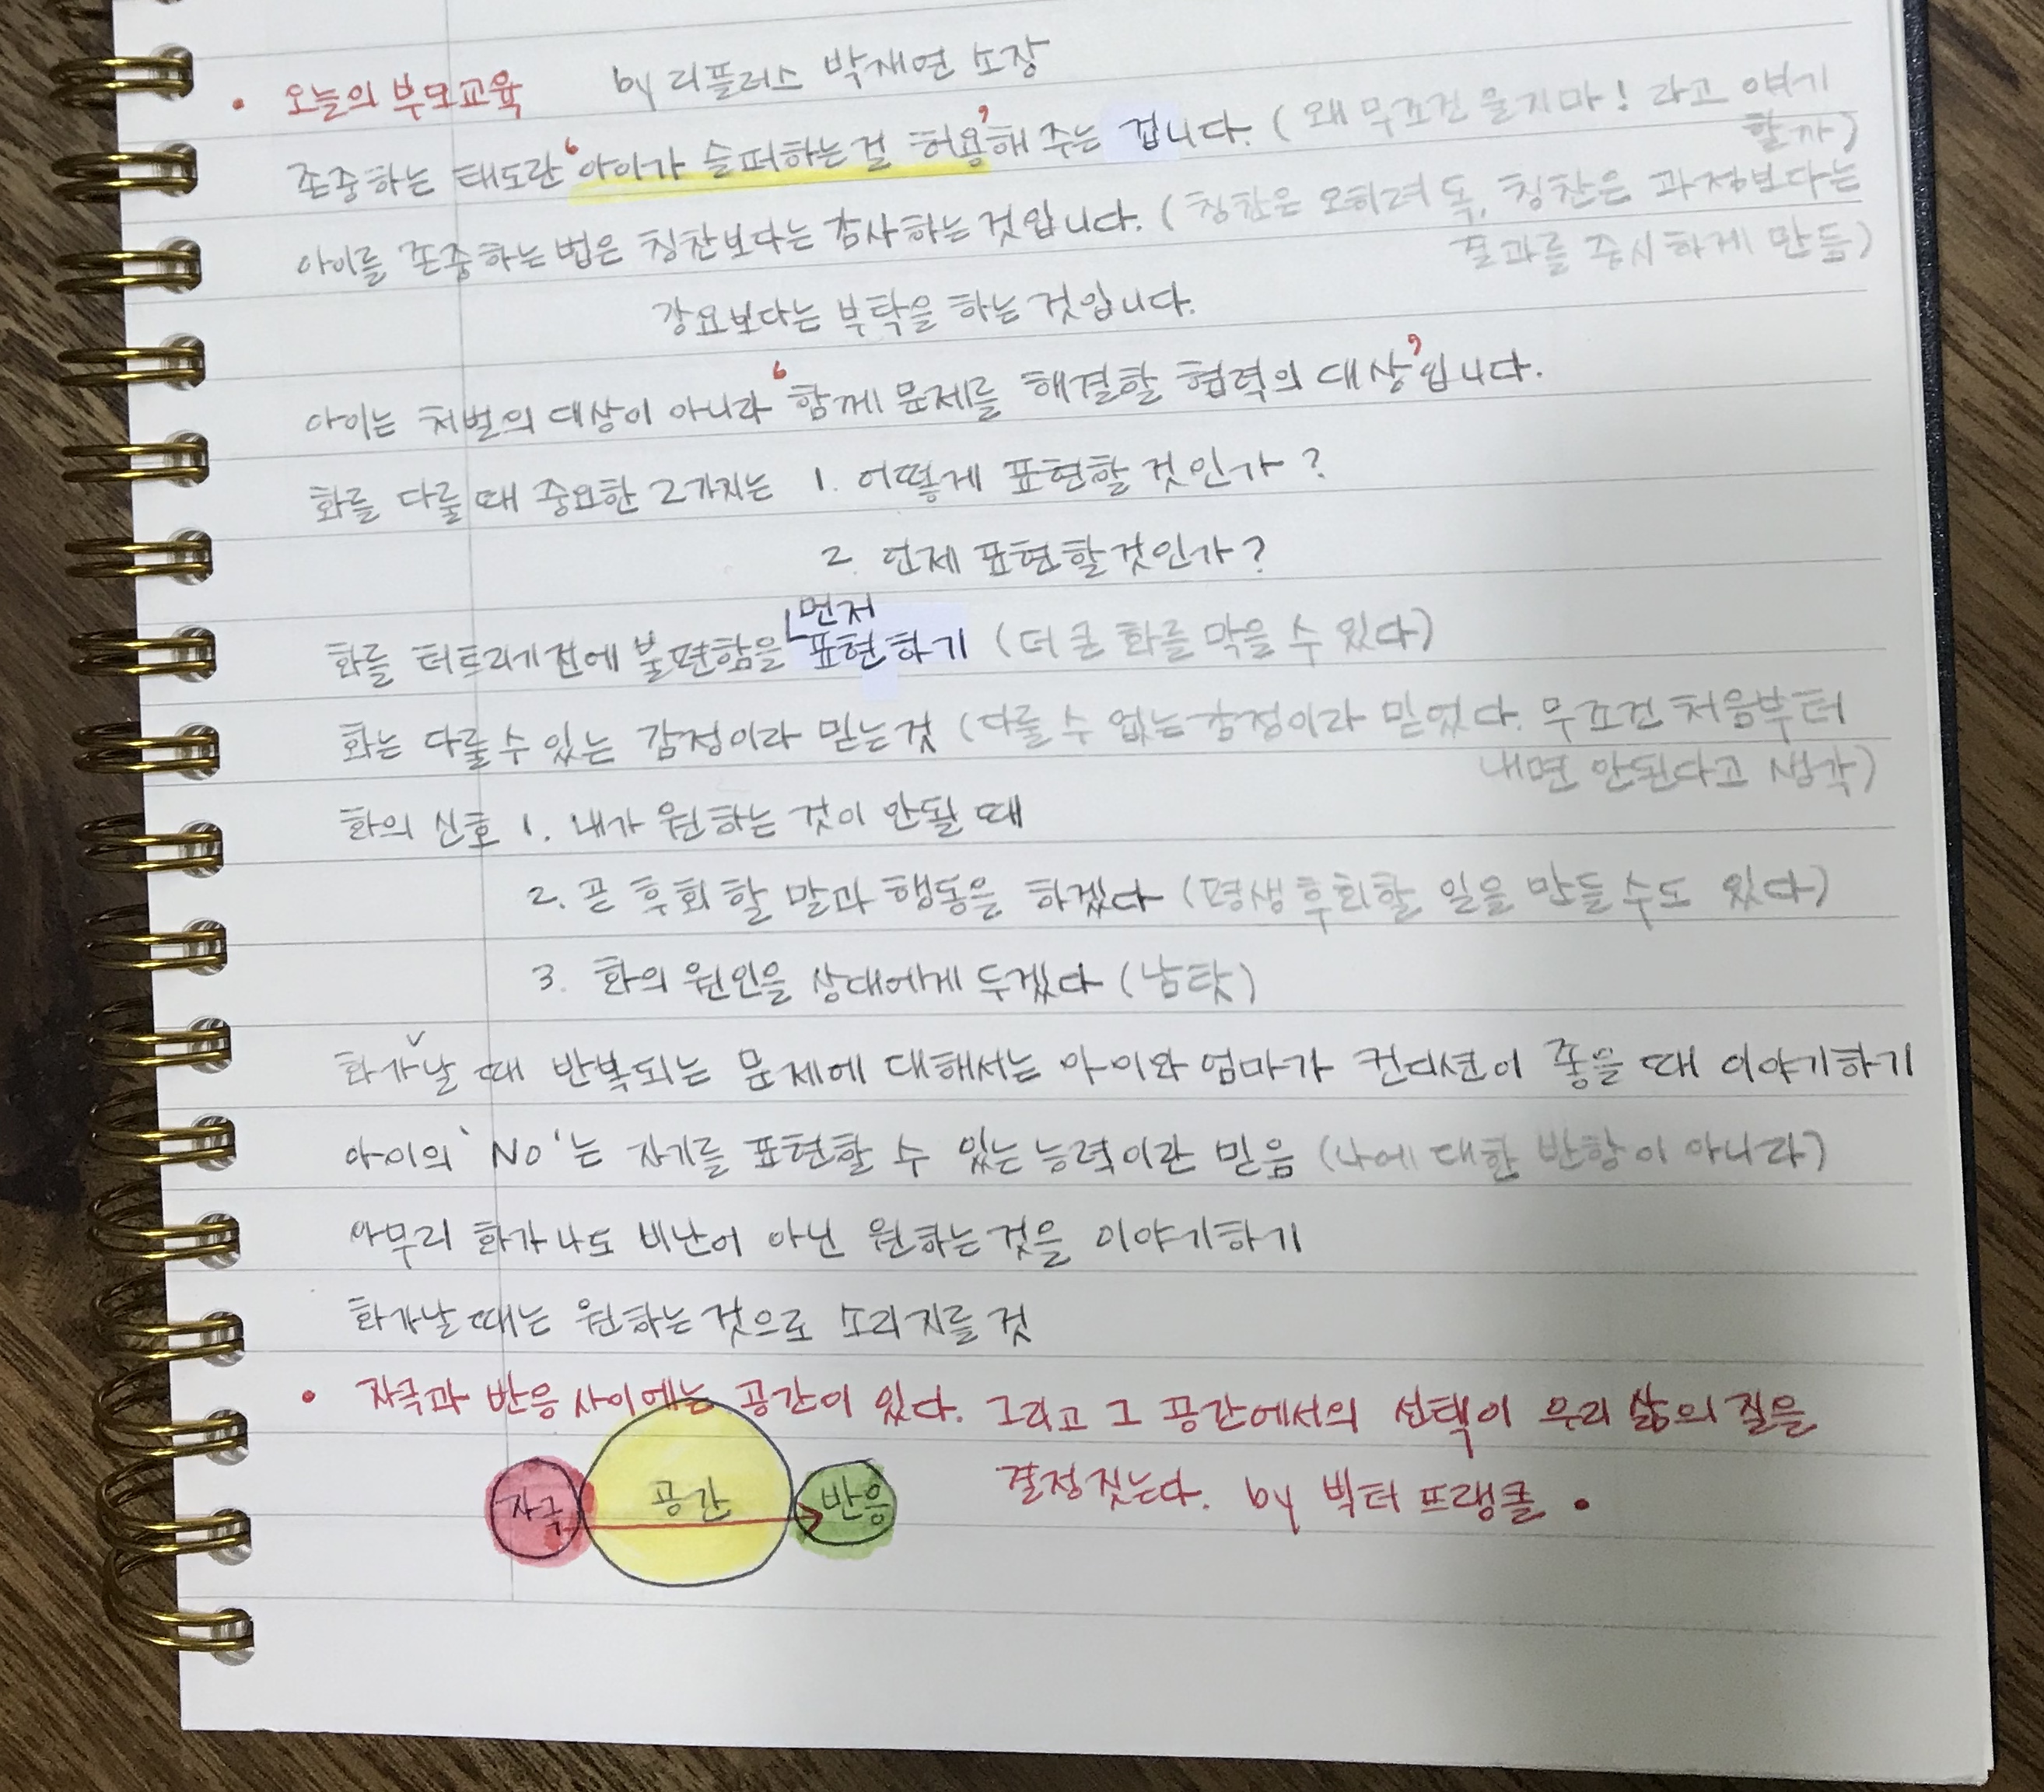 • 오늘의 부모교육 by 리플러스 박재연 소장
존중하는 태도란 '아이가 슬퍼하는걸 허용'해 주는 겁니다. (왜 무조건 울지마! 라고 얘기
할까)
아이를 존중하는 법은 칭찬보다는 감사하는 것입니다. (칭찬은 오히려 독, 칭찬은 과정보다는
결과를 중시하게 만듦)
강요보다는 부탁을 하는 것입니다.
아이는 처벌의 대상이 아니라 '함께 문제를 해결할 협력의 대상'입니다.
화를 다룰 때 중요한 2가지는 1. 어떻게 표현할 것인가?
2. 언제 표현할 것인가?
먼저
화를 터트리기 전에 불편함을 표현하기 (더 큰 화를 막을 수 있다)
화는 다룰 수 있는 감정이라 믿는 것 (다룰 수 없는 감정이라 믿었다. 무조건 처음부터
내면 안된다고 생각)
화의 신호 1. 내가 원하는 것이 안될 때
2. 곧 후회할 말과 행동을 하겠다 (평생 후회할 일을 만들 수도 있다)
3. 화의 원인을 상대에게 두겠다 (남탓)
화가 날 때 반복되는 문제에 대해서는 아이와 엄마가 컨디션이 좋을 때 이야기하기
아이의 'No'는 자기를 표현할 수 있는 능력이란 믿음 (나에 대한 반항이 아니라)
아무리 화가 나도 비난이 아닌 원하는 것을 이야기하기
화가날 때는 원하는 것으로 소리지를 것
• 자극과 반응 사이에는 공간이 있다. 그리고 그 공간에서의 선택이 우리 삶의 질을
결정짓는다. by 빅터 프랭클 •
자극 공간 반응